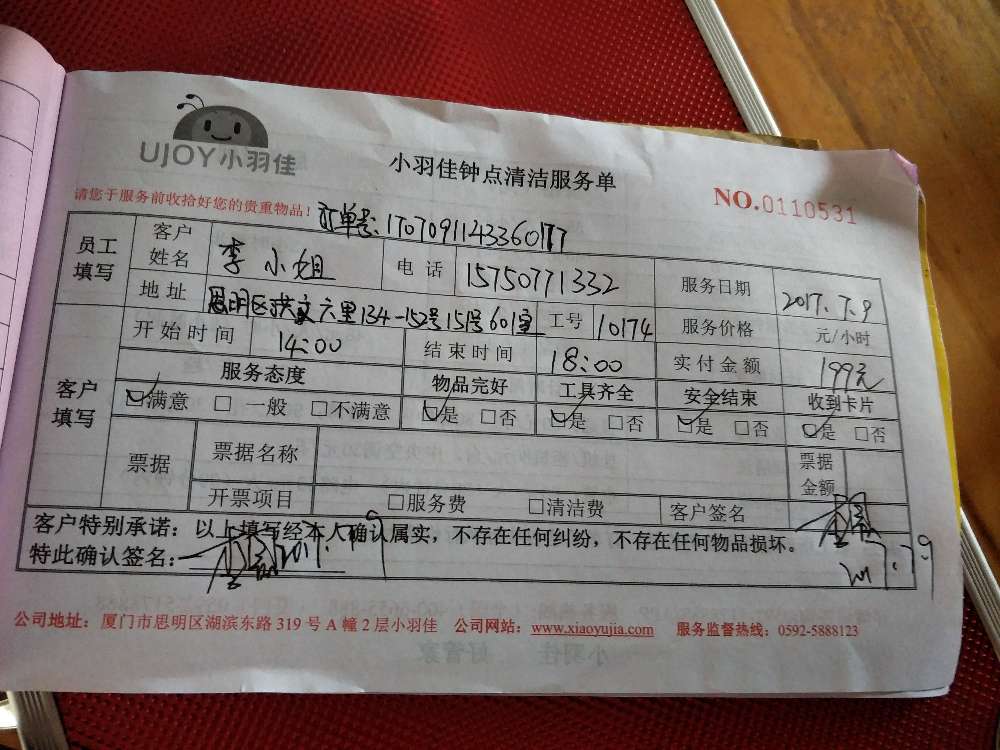 UJOY小羽佳
小羽佳钟点清洁服务单
NO.0110531
请您于服务前收拾好您的贵重物品!
订单号:1707091143360177
员工填写 客户姓名 李小姐 电话 15750771332 服务日期 2017.7.9
地址 思明区洪文六里134-152号151号601室 工号 10174 服务价格 元/小时
客户填写 开始时间 14:00 结束时间 18:00 实付金额 199元
服务态度 物品完好 工具齐全 安全结束 收到卡片
☑满意 □一般 □不满意 ☑是 □否 ☑是 □否 ☑是 □否 ☑是 □否
票据 票据名称 票据金额
开票项目 □服务费 □清洁费 客户签名
客户特别承诺:以上填写经本人确认属实,不存在任何纠纷,不存在任何物品损坏。
特此确认签名:
公司地址:厦门市思明区湖滨东路319号A幢2层小羽佳 公司网站:www.xiaoyujia.com 服务监督热线:0592-5888123